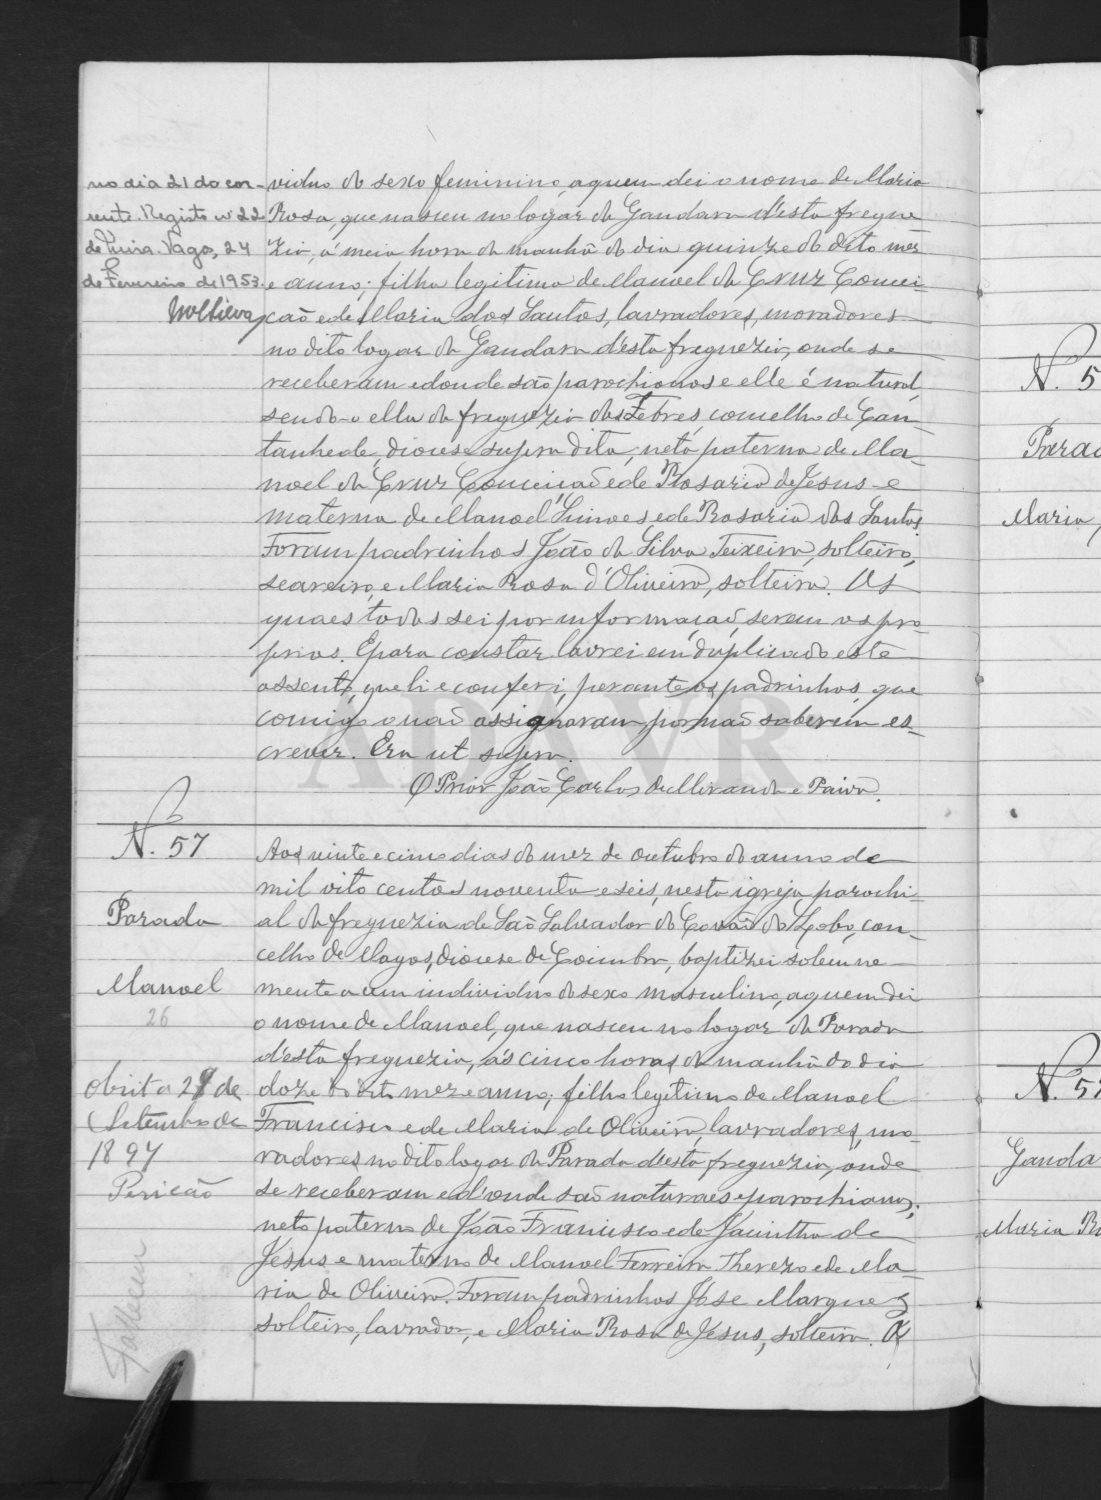 no dia 21 do cor-
rente. Registo nº 22
de Mira. Vagos, 24
de Fevereiro de 1953.
viduo do sexo feminino, a quem dei o nome de Maria
Rosa, que nasceu no logar da Gandara d'esta fregue
zia, á meia hora da manhã do dia quinze do dito mez
e anno; filha legitima de Manoel da Cruz Concei-
ção e de Maria dos Santos, lavradores, moradores
no dito logar da Gandara d'esta freguezia, onde se
receberam e donde são parochianos e elle é natural,
sendo-o ella da freguezia das Febres, concelho de Can-
tanhede, diocese supra dita; neta paterna de Ma-
noel da Cruz Conceição e de Rosaria de Jesus e
materna de Manoel Simões, e de Rosaria dos Santos.
Foram padrinhos João da Silva Teixeira, solteiro,
seareiro, e Maria Rosa d'Oliveira, solteira. Os
quaes todos sei por informação serem os pro-
prios. E para constar lavrei em duplicado este
assento, que li e conferi, perante os padrinhos, que
comigo não assignaram, por não saberem es-
crever. Era ut supra.
O Prior João Carlos de Miranda e Paiva.
N. 57
Parada
Manoel
26
Obiit a 27 de
Setembro de
1897
Pericão
Falleceu
Aos vinte e cinco dias do mez de outubro do anno de
mil oito centos noventa e seis, nesta igreja parochi-
al da freguezia de São Salvador do Covão do Lobo, con-
celho de Vagos, diocese de Coimbra, baptizei solemne-
mente a um individuo do sexo masculino, a quem dei
o nome de Manoel, que nasceu no logar da Parada
d'esta freguezia, ás cinco horas da manhã do dia
doze do dito mez e anno; filho legitimo de Manoel
Francisco e de Maria de Oliveira, lavradores, mo-
radores no dito logar da Parada d'esta freguezia, onde
se receberam e d'onde são naturaes e parochianos;
neto paterno de João Francisco e de Jacintha de
Jesus e materno de Manoel Ferreira Thereza e de Ma-
ria de Oliveira. Foram padrinhos José Marques
solteiro, lavrador, e Maria Rosa de Jesus, solteira. O
N. 5
Parad
Maria,
N. 5
Ganda
Maria Ro
ADAVR